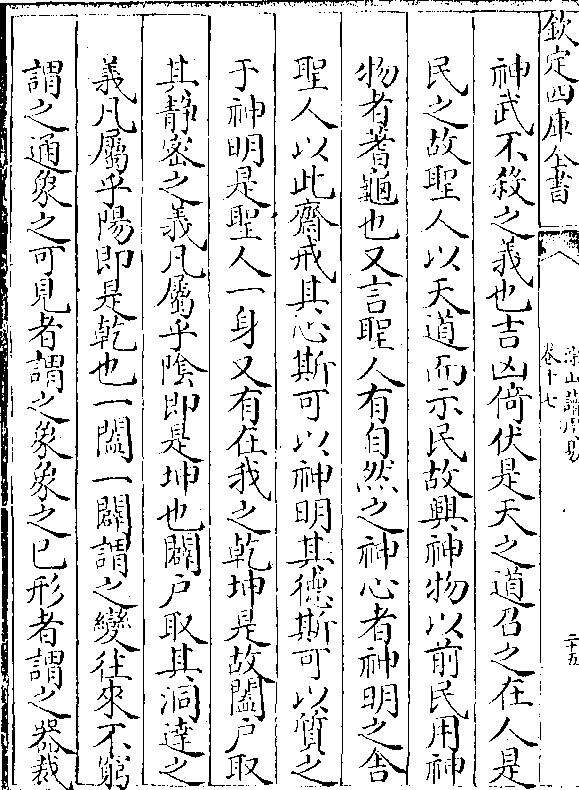 欽定四庫全書
卷十七
二十五
神武不殺之義也吉凶倚伏是天之道召之在人是
民之故聖人以天道而示民故興神物以前民用神
物者蓍龜也又言聖人有自然之神心者神明之舍
聖人以此齋戒其心斯可以神明其德斯可以質之
于神明是聖人一身又有在我之乾坤是故闔户取
其靜密之義凡屬乎陰即是坤也闢户取其洞達之
義凡屬乎陽即是乾也一闔一闢謂之變往來不窮
謂之通象之可見者謂之象象之已形者謂之器裁